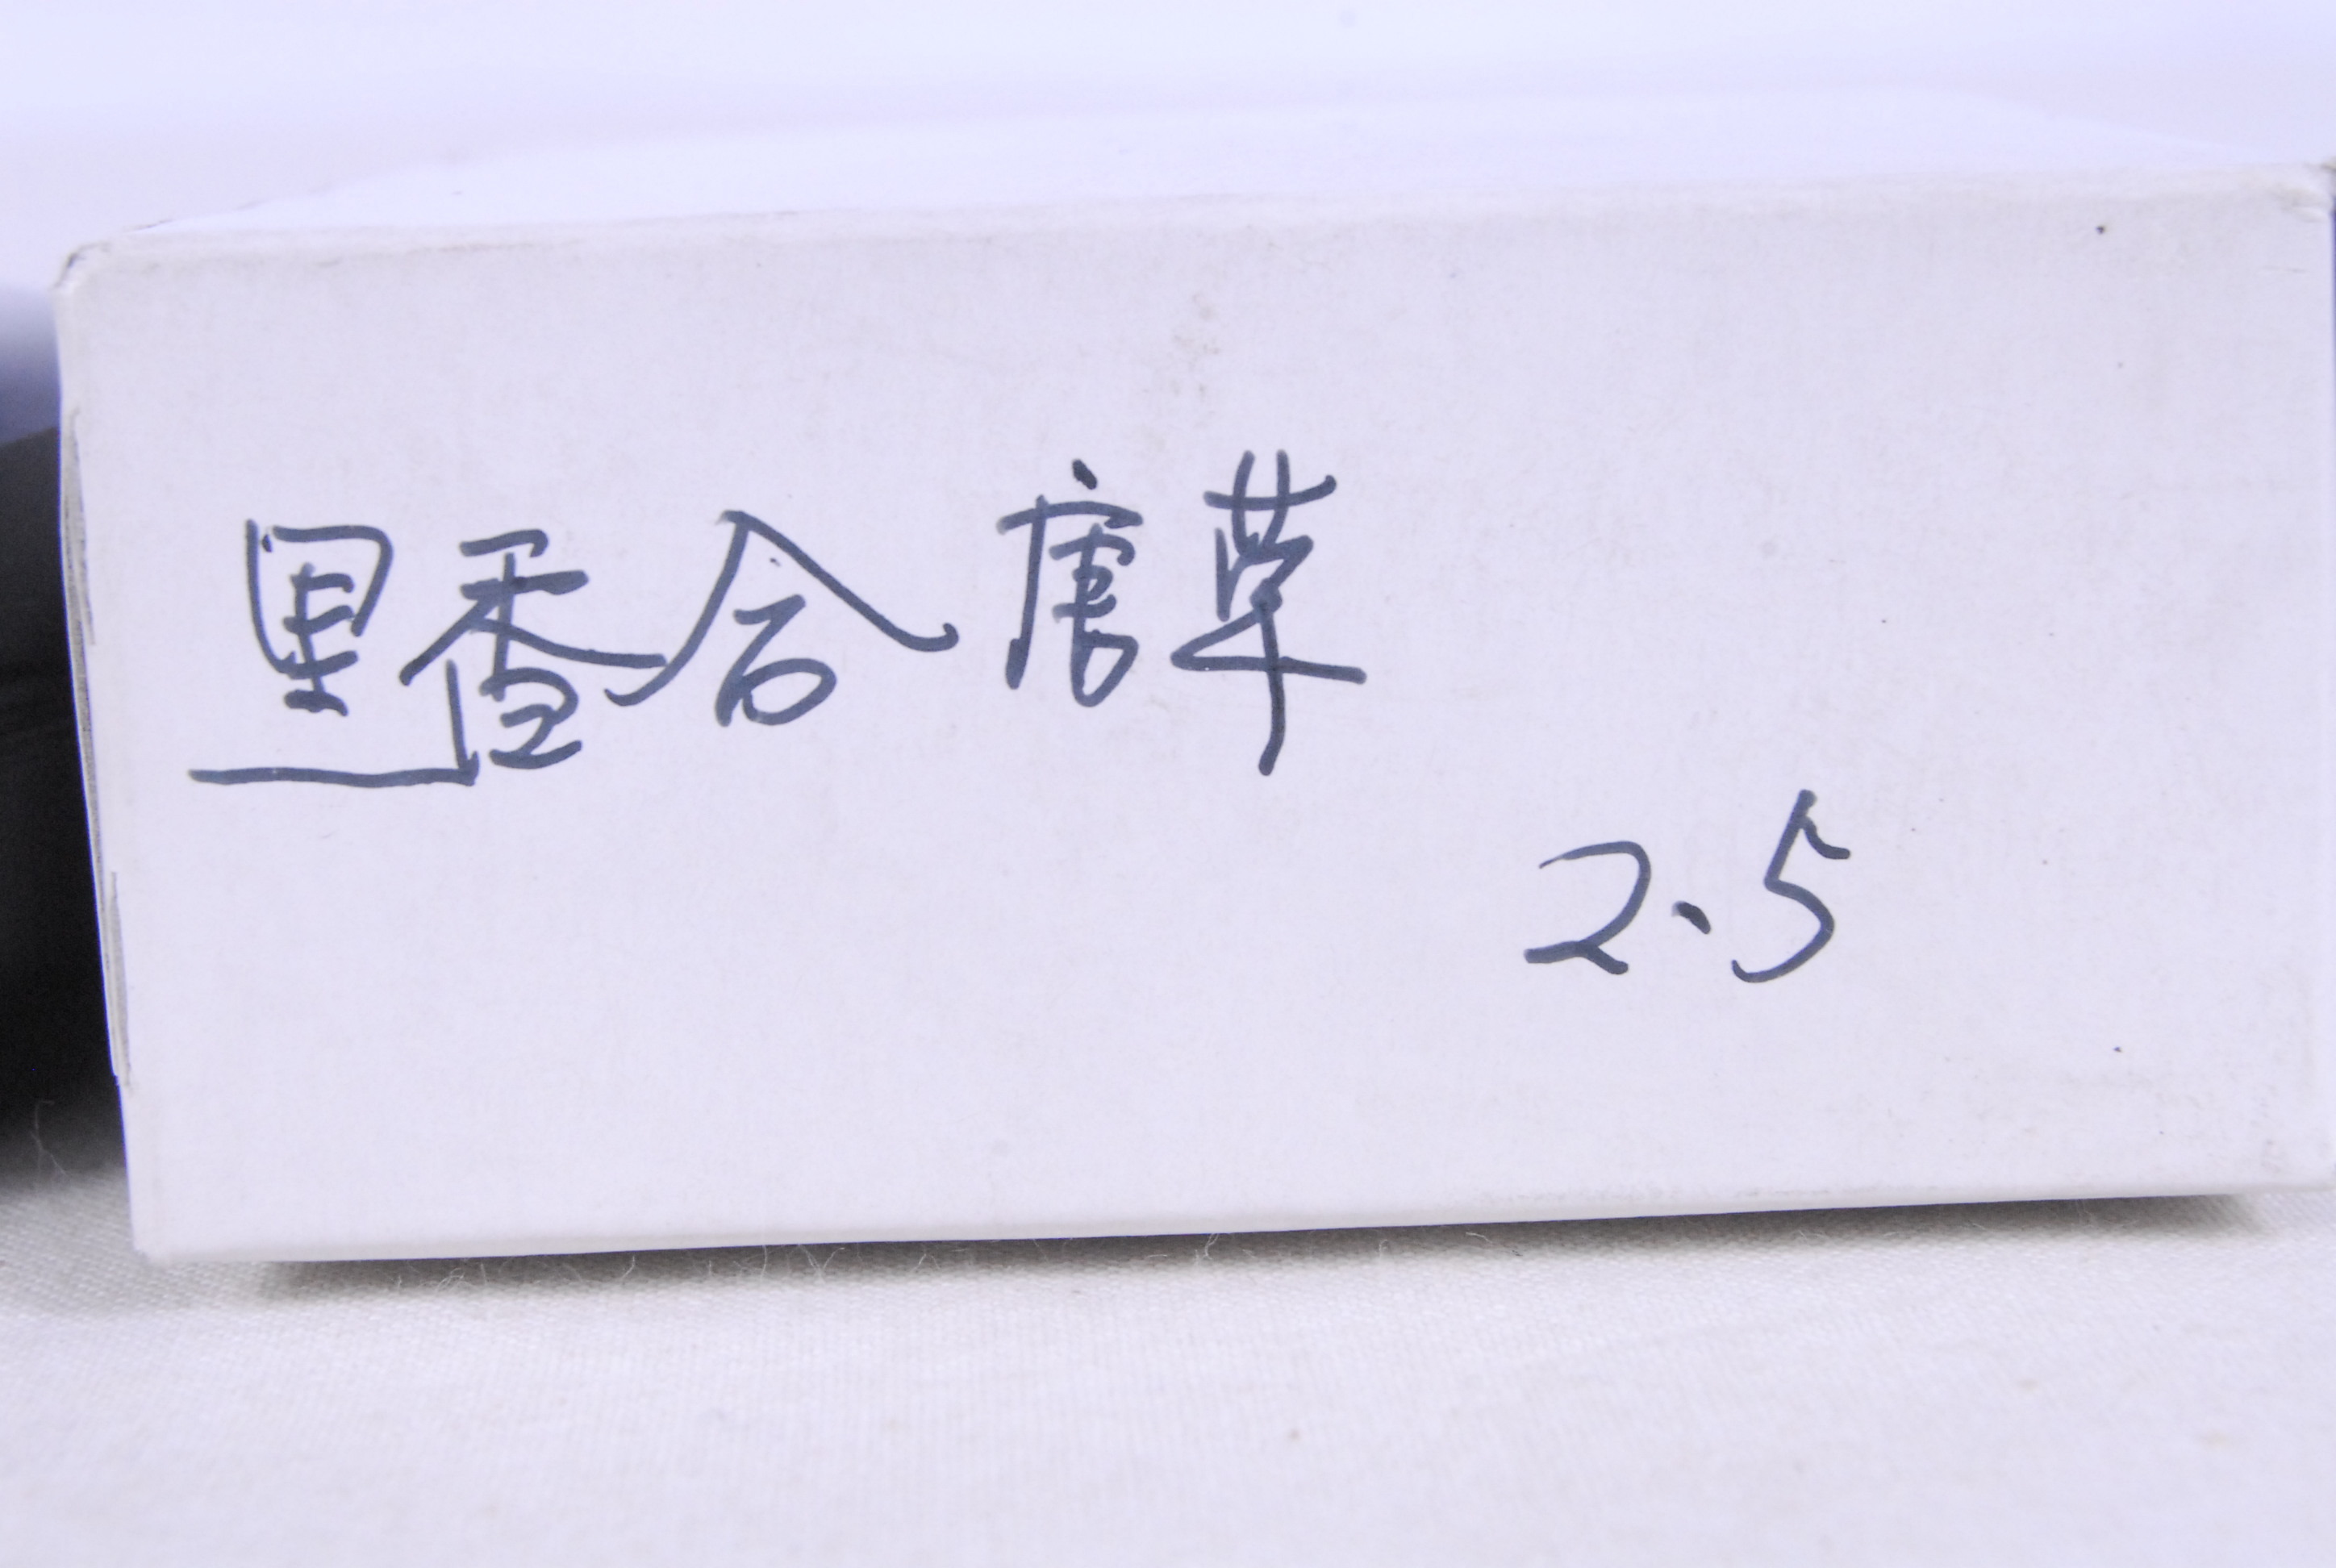 黒香合 唐草
2.5